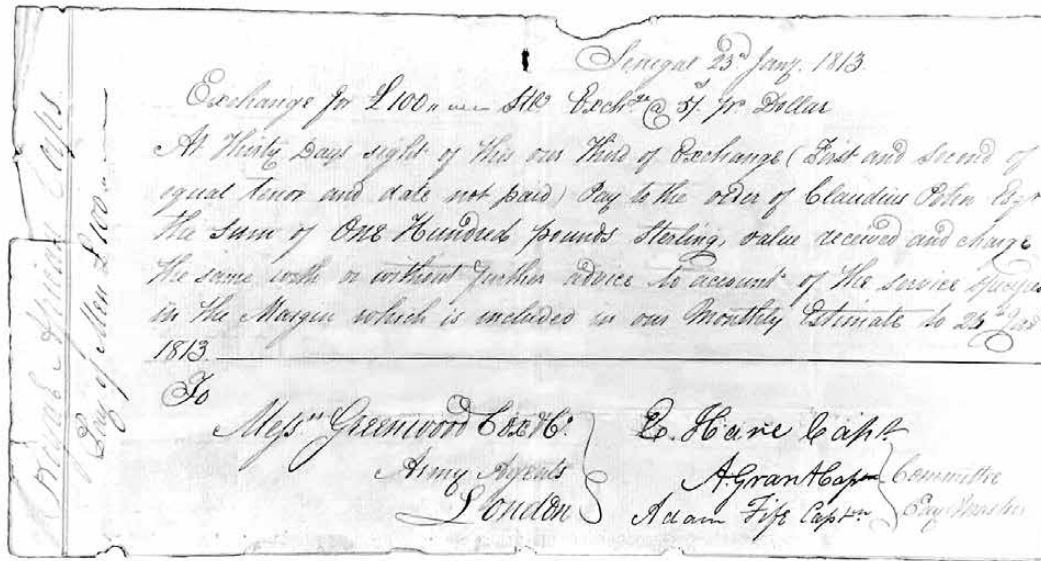 Senegal 23rd Jany. 1813
Exchange for £100 Stg Exche @ 5/ pr. Dollar
At Thirty Days sight of this our Third of Exchange (First and Second of
equal tenor and date not paid) Pay to the order of Claudius Poten Esqr
the Sum of One Hundred pounds Sterling, value received and charge
the same with or without further advice to account of the service
in the Margin which is included in our Monthly Estimate to 24th
1813
To
Messrs Greenwood Cox & Co.
Army Agents
London
E. Hare Capt
A. Grant Captn
Adam Fife Captn
Committee
Paymaster
African Corps
Pay of Men £100